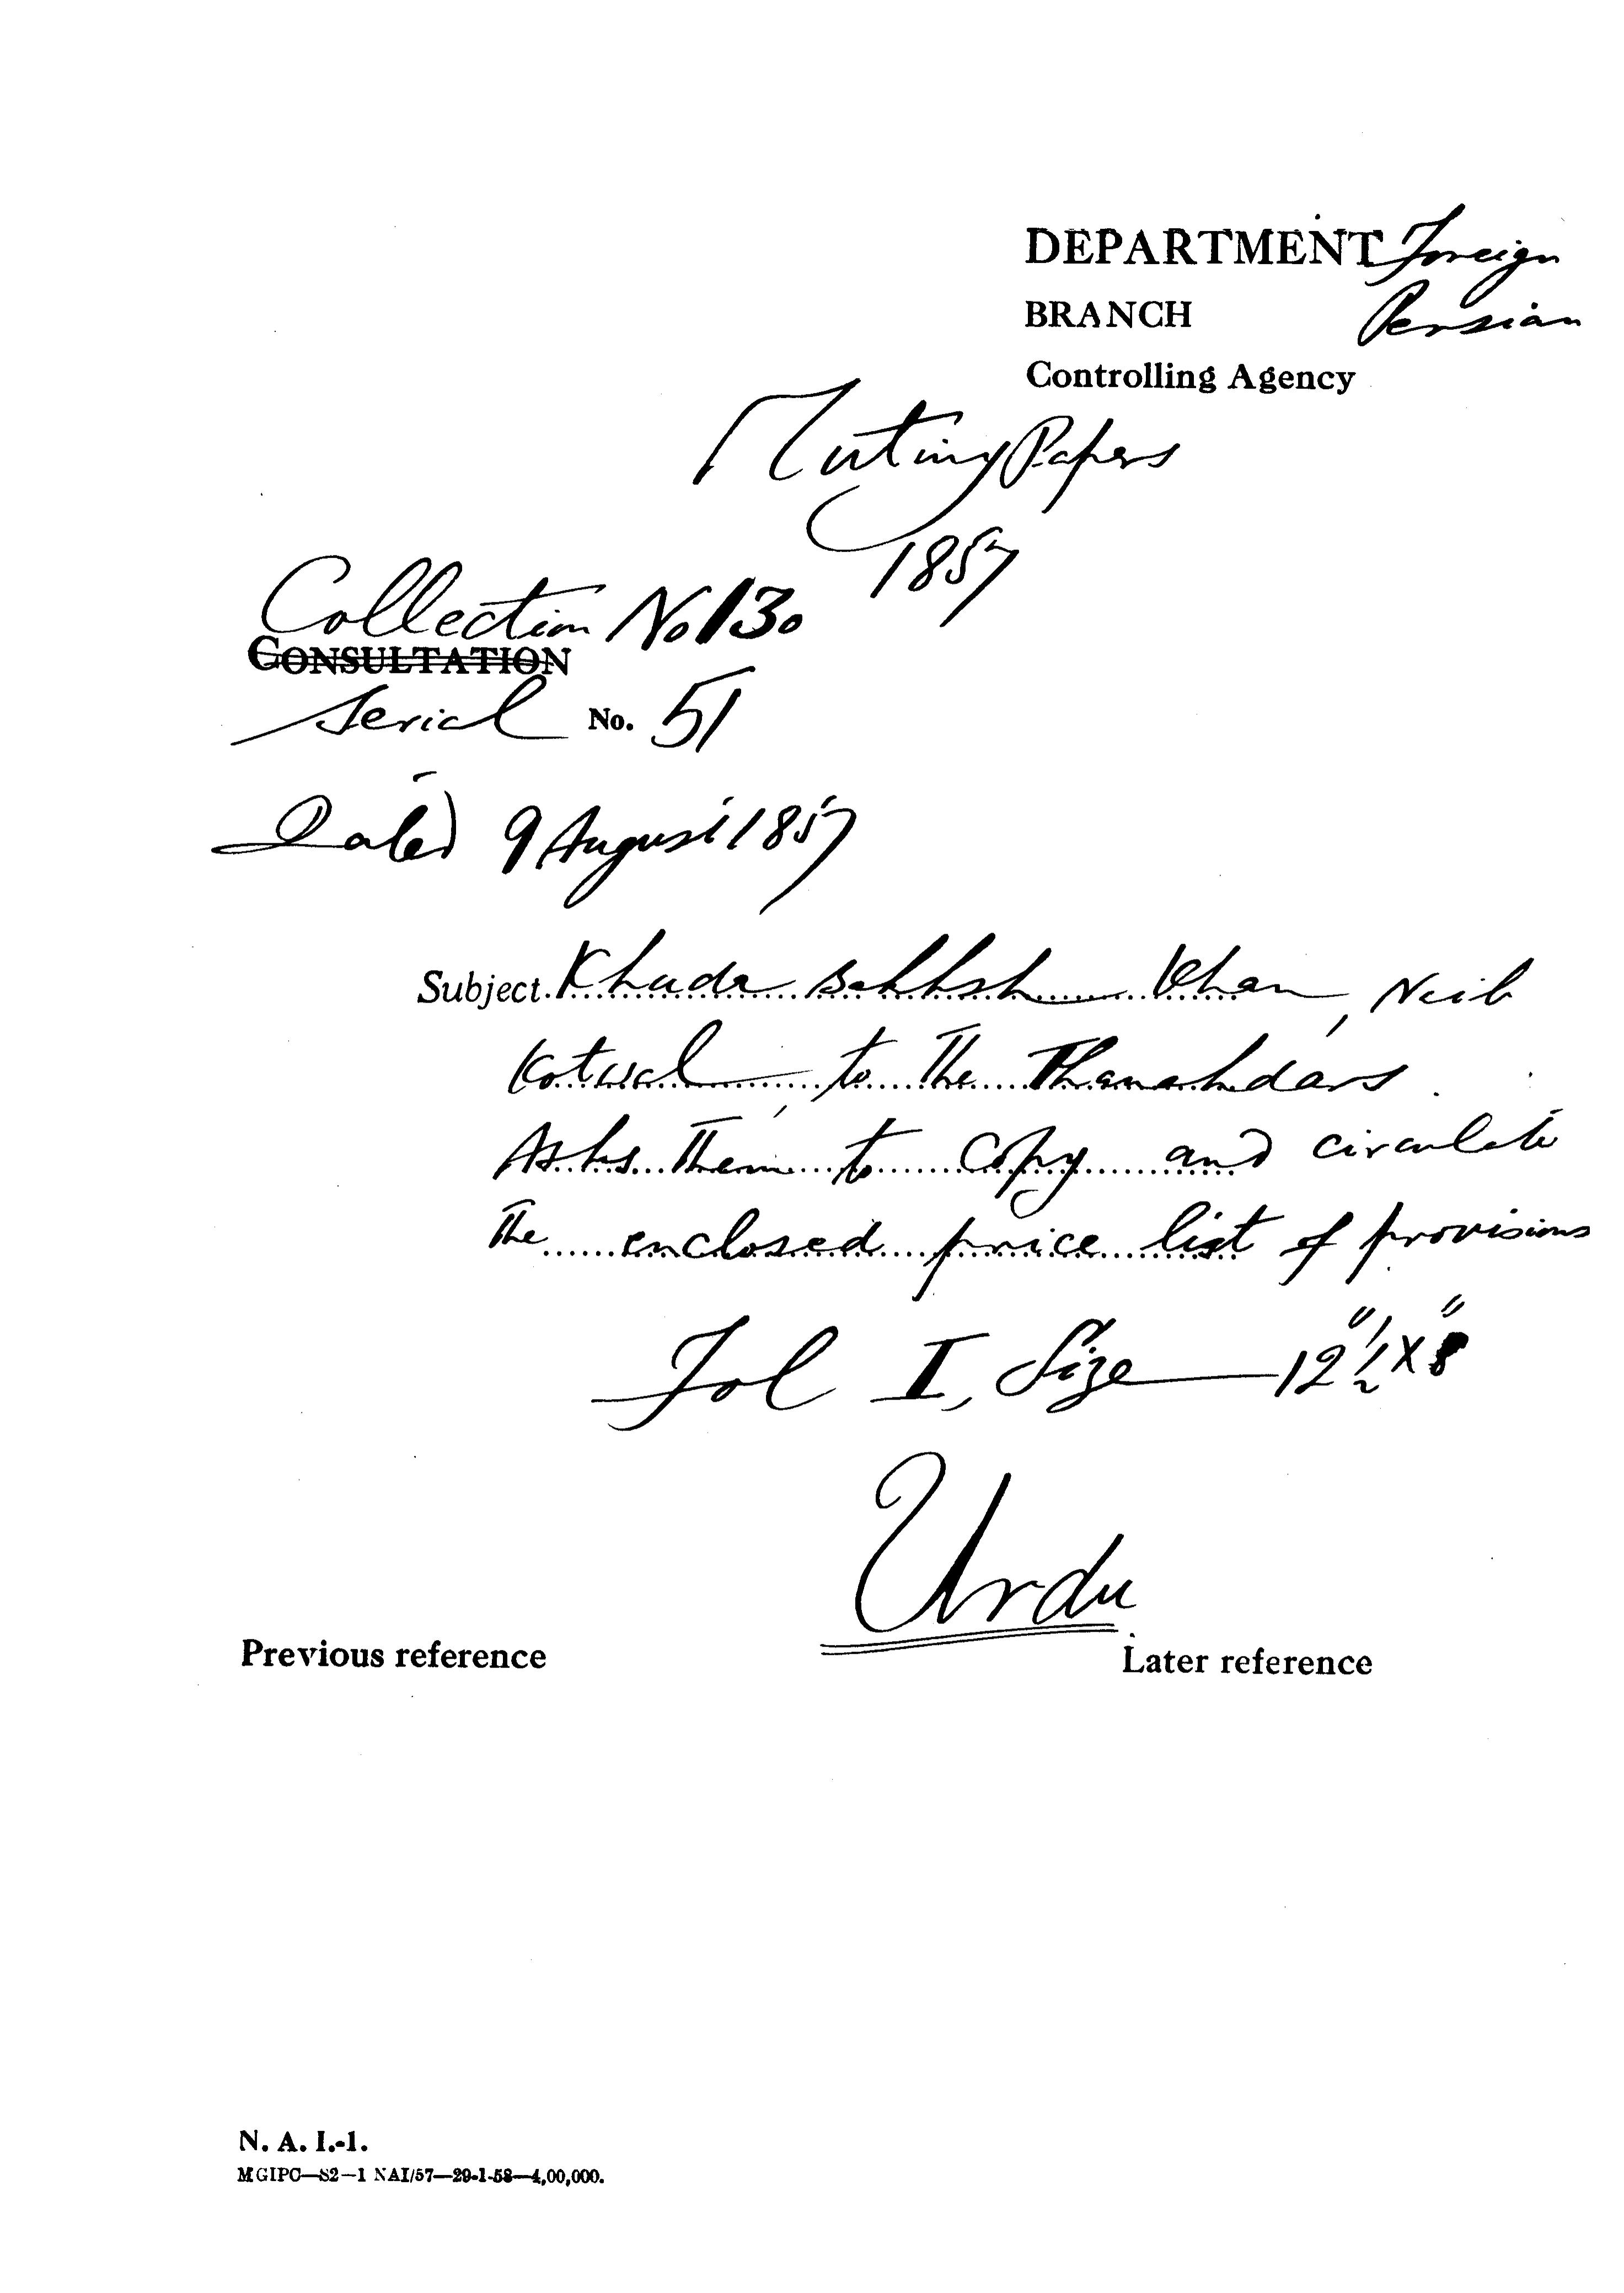 DEPARTMENT Foreign
BRANCH Persian
Controlling Agency
Mutiny Papers
1857
Collection No 130
CONSULTATION
Serial No. 51
Dated 9 August 1857
Subject. Khuda Bakhsh Khan, Naib
Kotwal, to the Thanahdars.
Asks them to copy and circulate
the enclosed price list of provisions
Fol I, Size — 12"½ x 8"
Urdu
Previous reference
Later reference
N. A. I.-1.
MGIPC—S2—1 NAI/57—29-1-58—4,00,000.